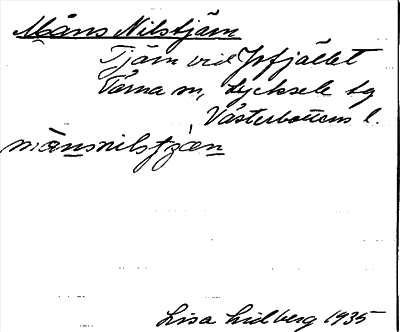 Måns Nilstjärn
Tjärn vid Jofjället
Tärna sn, Lycksele lg
Västerbottens l.
månsnilstjæn
Lisa Lidberg 1935